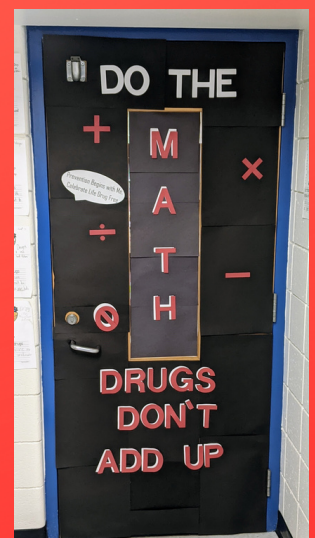 DO THE
+
M
×
A
Prevention Begins with Me
Celebrate Life Drug Free
÷
T
−
H
DRUGS
DON'T
ADD UP